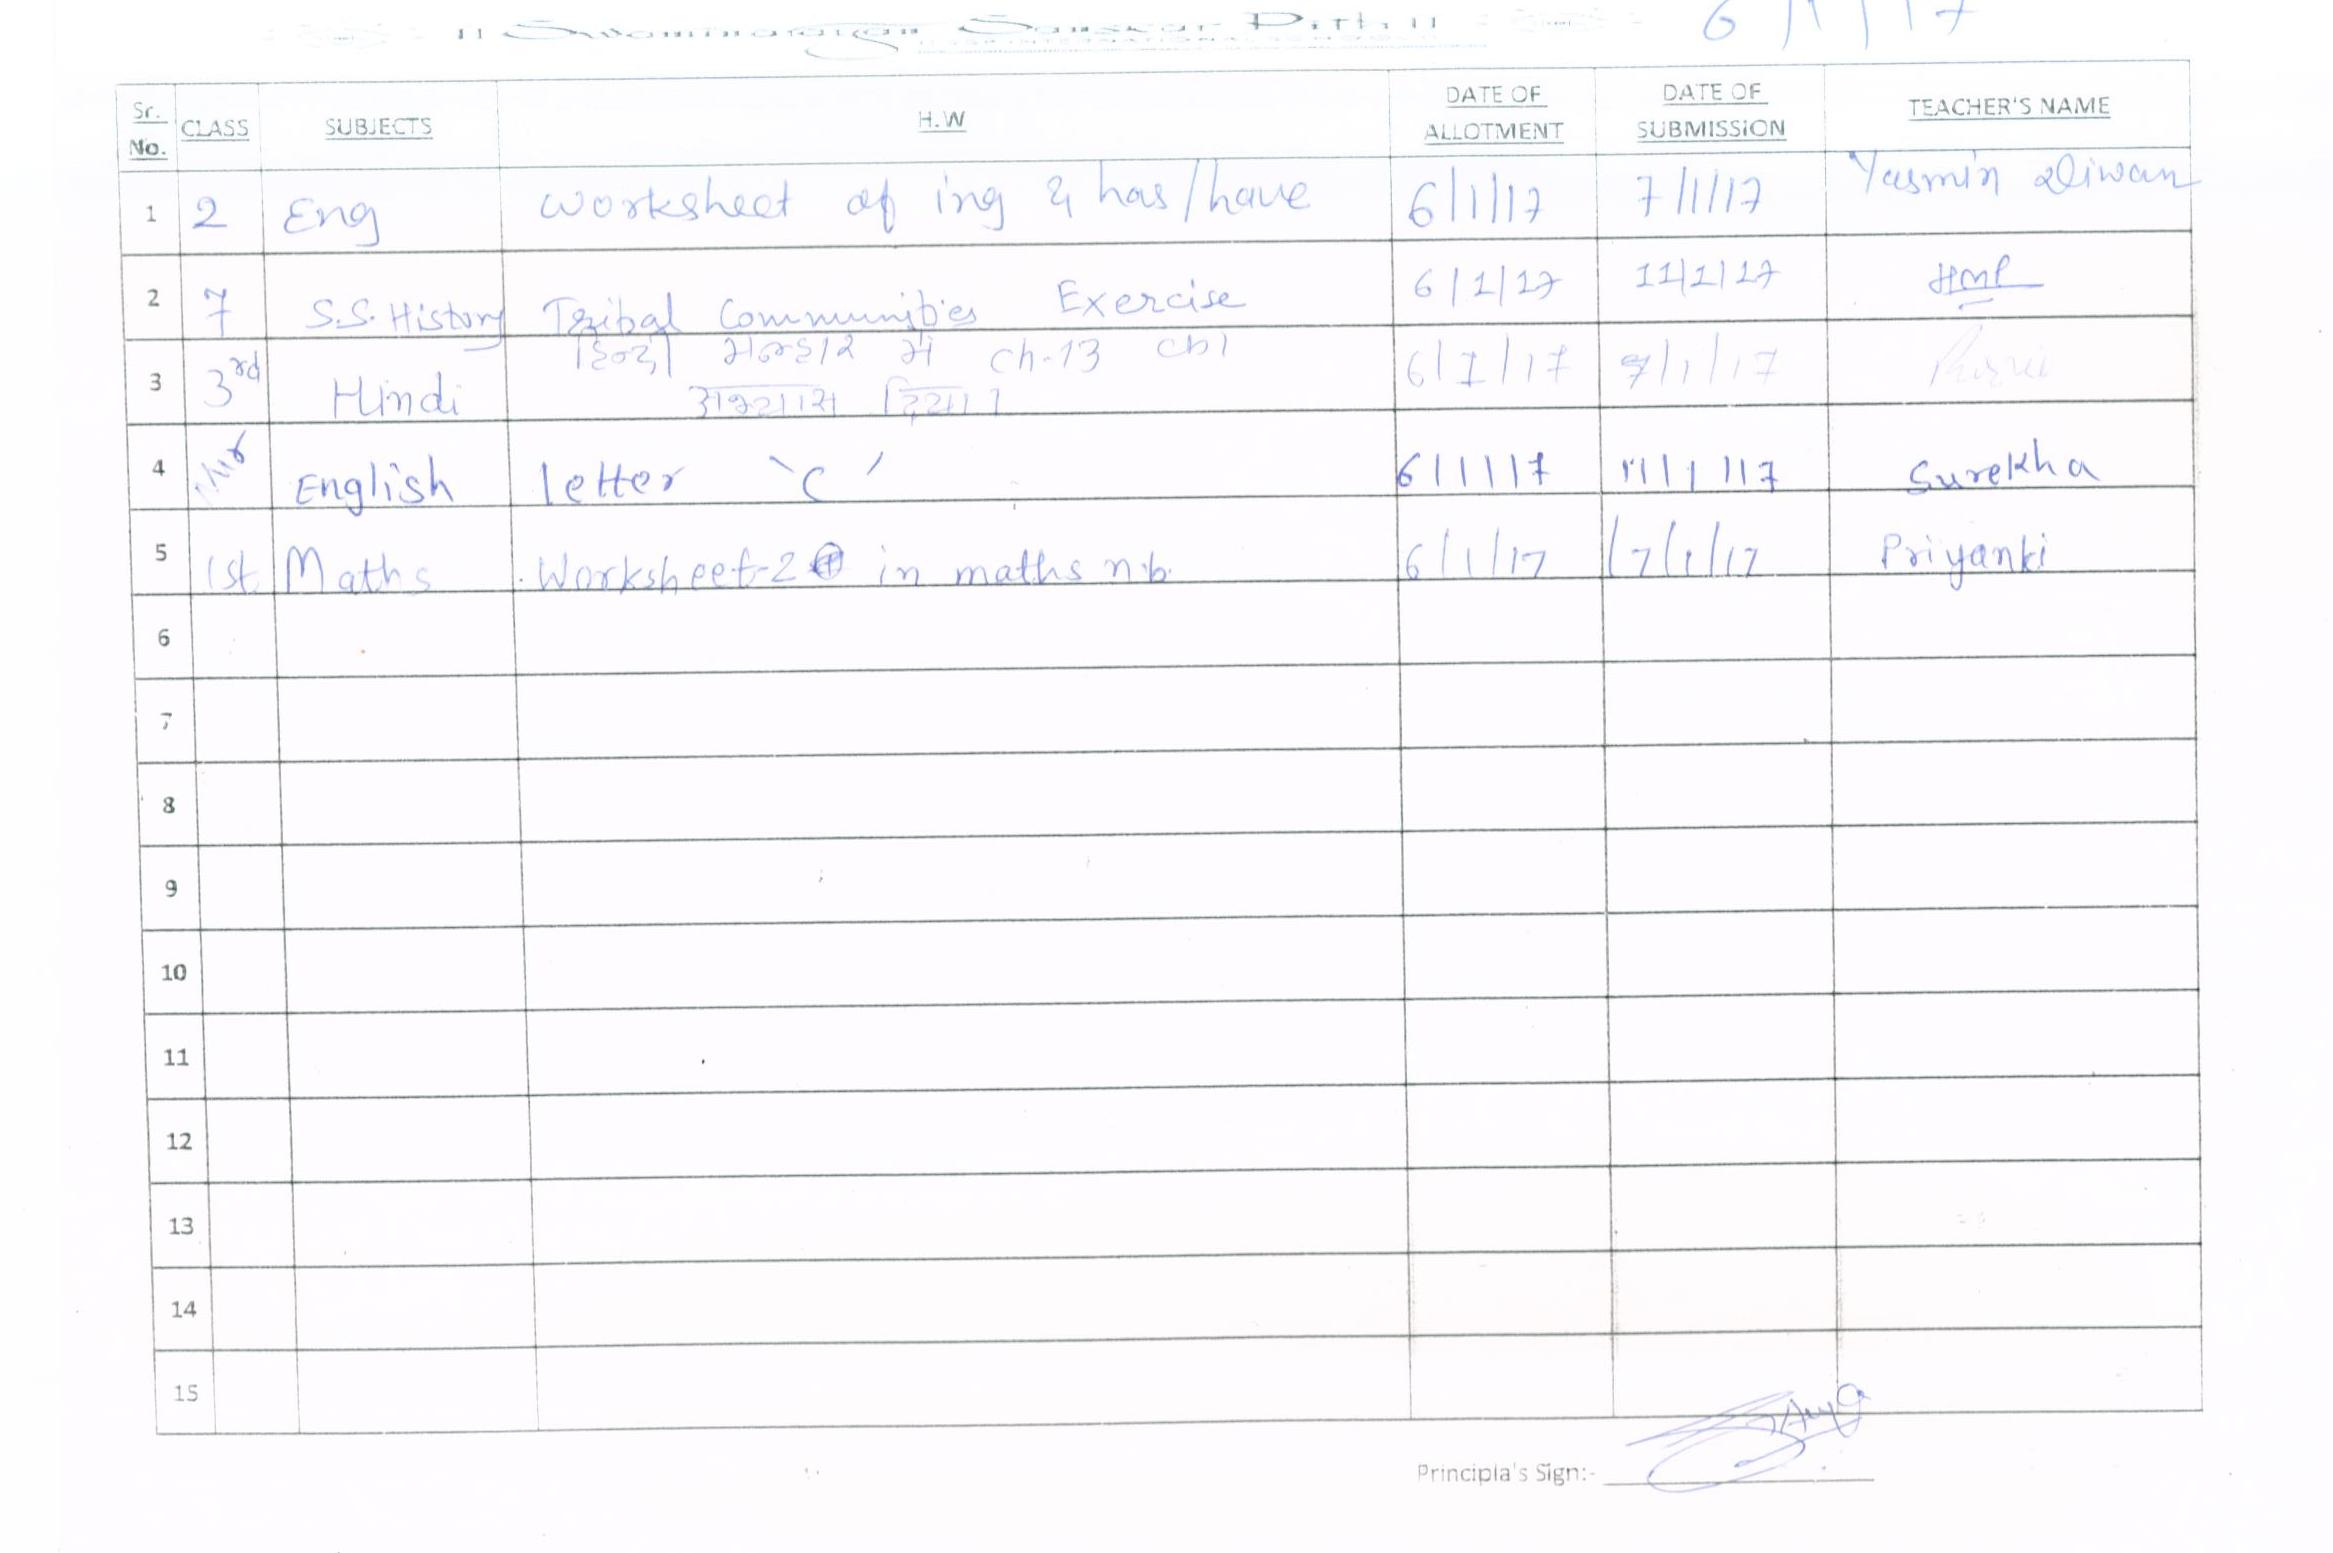 ॥ Swaminarayan Sanskar Pith ॥ 6/1/17
Sr. No. CLASS SUBJECTS H.W DATE OF ALLOTMENT DATE OF SUBMISSION TEACHER'S NAME
1 2 Eng worksheet of ing & has/have 6/1/17 7/1/17 Yasmin Diwan
2 7 S.S. History Tribal Communities Exercise 6/1/17 11/1/17
3 3rd Hindi हिन्दी में ch-13 का 6/1/17 7/1/17
अभ्यास दिया।
4 English letter 'c' 6/1/17 11/1/17 Surekha
5 1st Maths Worksheet-2 in maths n.b. 6/1/17 7/1/17 Priyanki
6
7
8
9
10
11
12
13
14
15
Principla's Sign:-